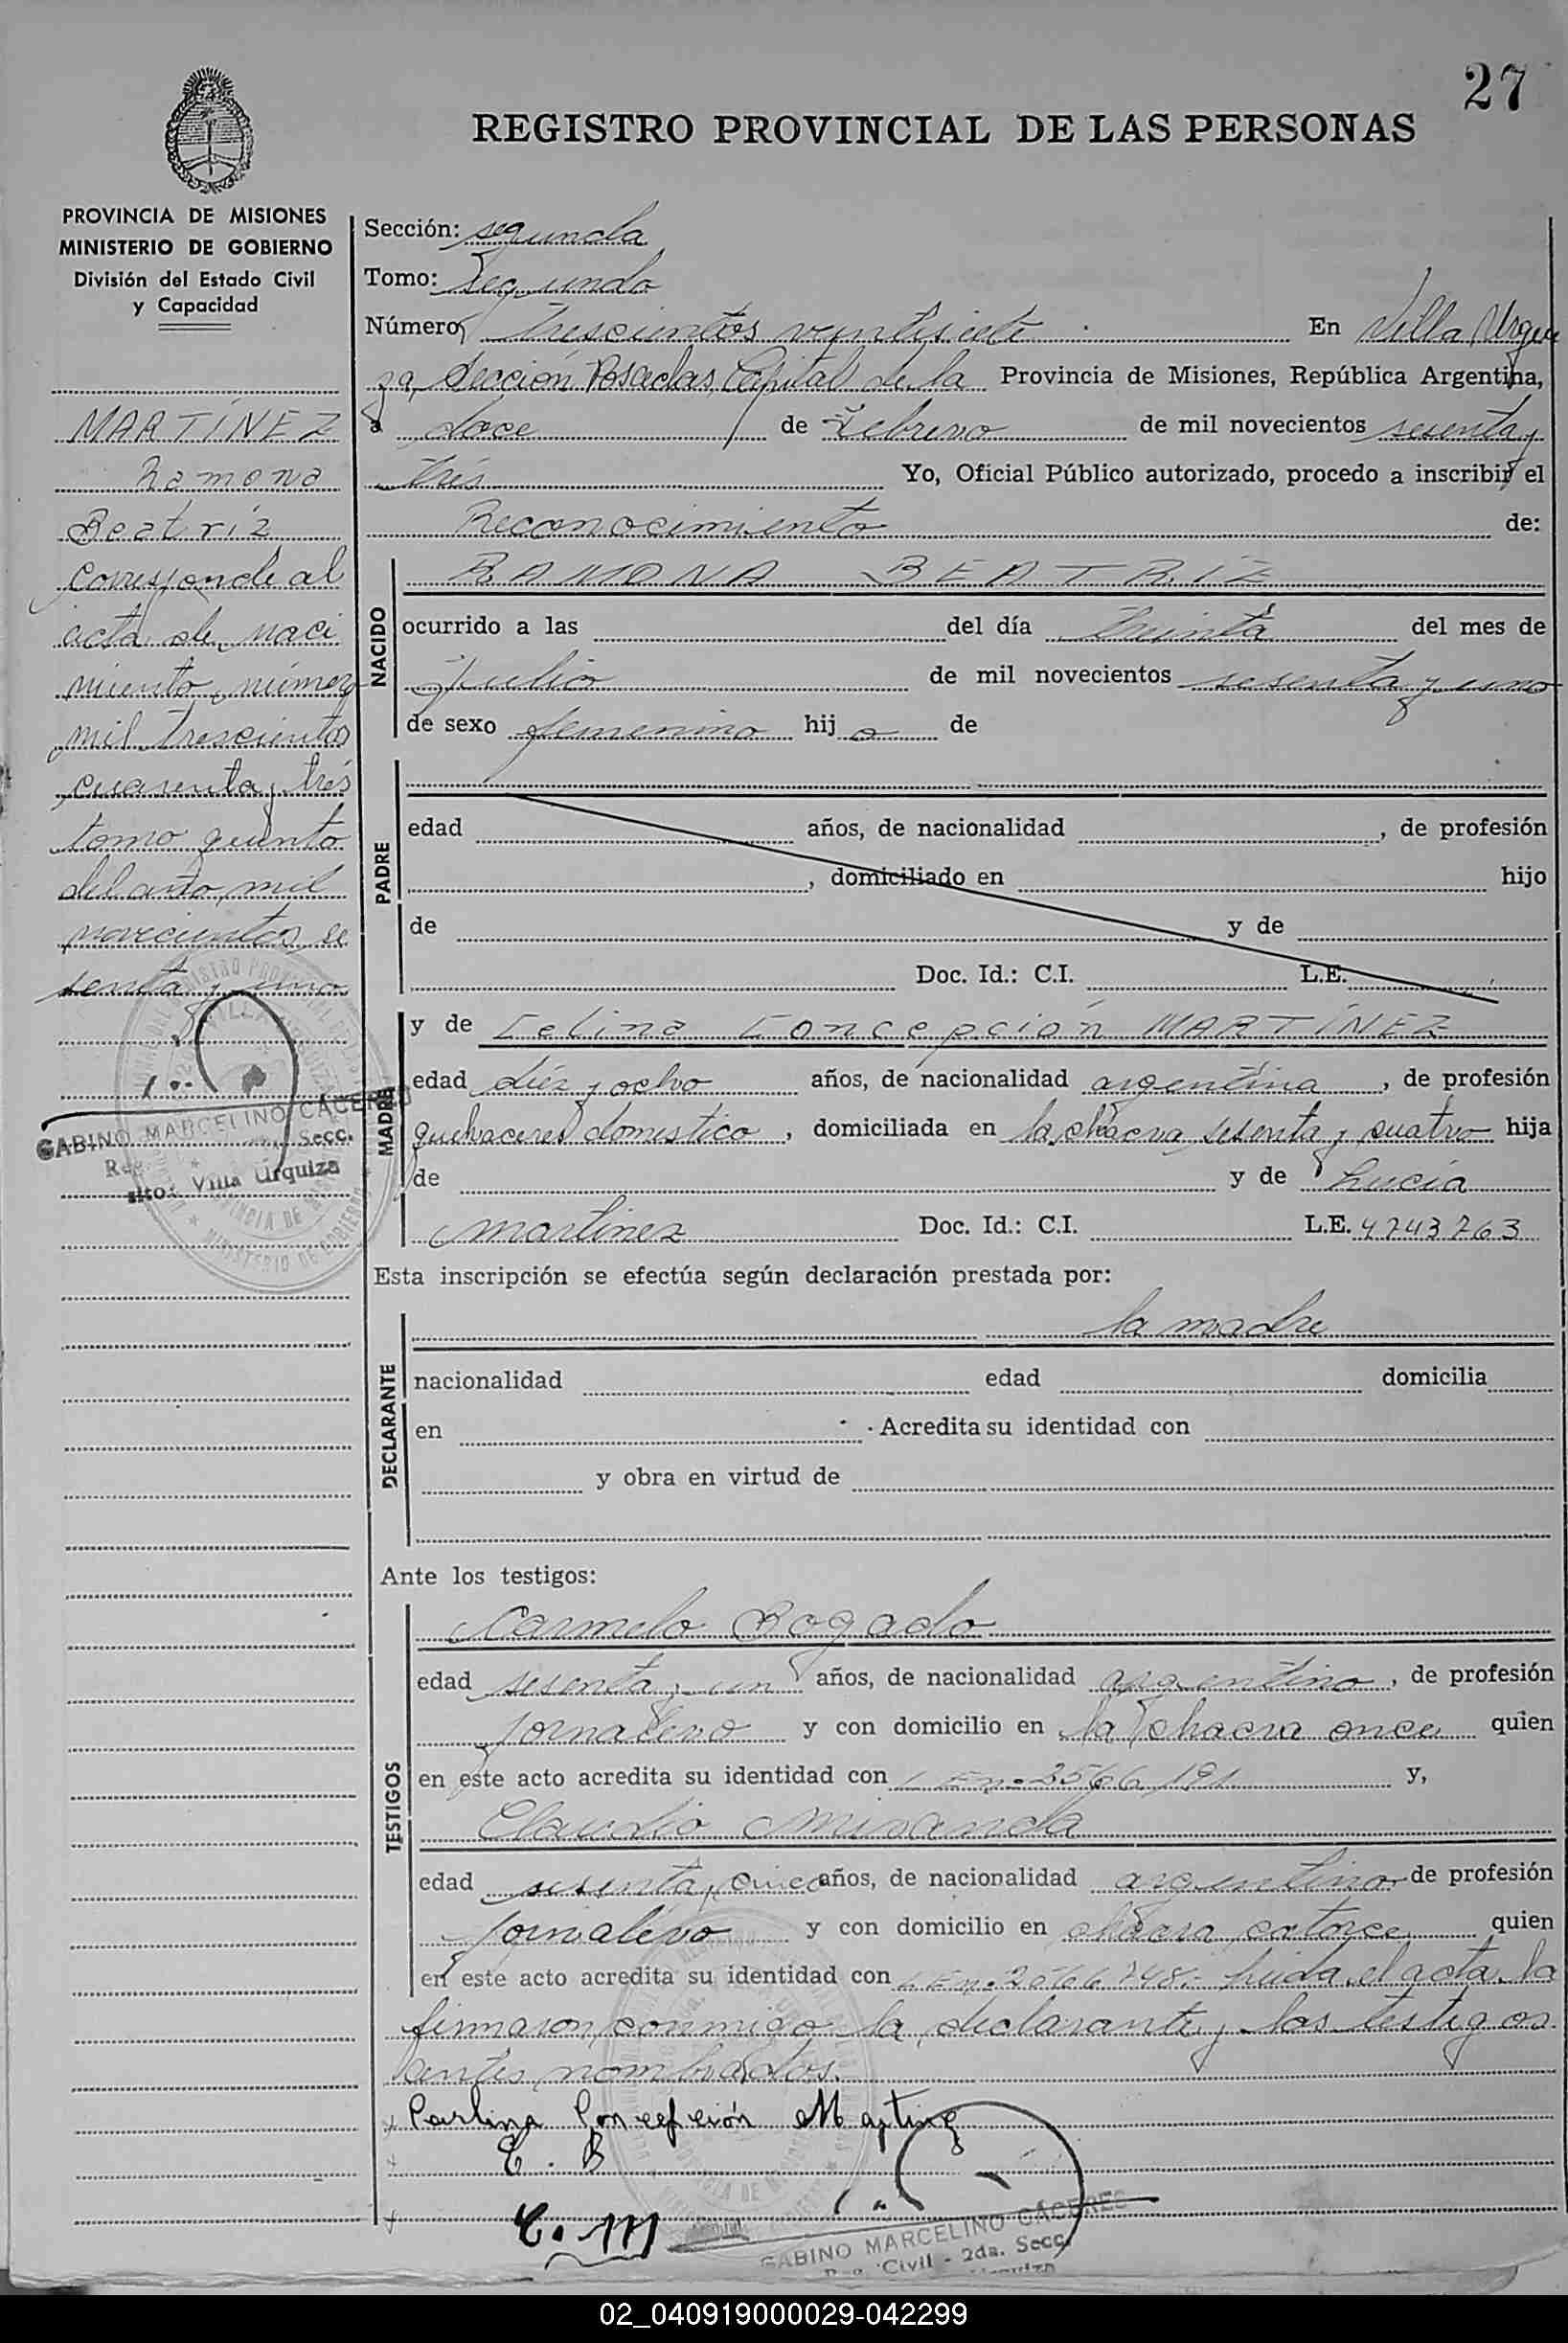 27
REGISTRO PROVINCIAL DE LAS PERSONAS
PROVINCIA DE MISIONES
MINISTERIO DE GOBIERNO
División del Estado Civil
y Capacidad
MARTÍNEZ
Ramona
Beatríz
Corresponde al
acta de naci
miento, número
mil trescientos
cuarenta y trés
tomo quinto
del año mil
novecientos se
senta y uno
GABINO MARCELINO CACERES
Secc.
Villa Urquiza
Sección: segunda
Tomo: Segundo
Número, trescientos veintisiete. En Villa Urqui
za, Sección Posadas, Capital de la Provincia de Misiones, República Argentina,
a doce de Febrero de mil novecientos sesenta y
trés Yo, Oficial Público autorizado, procedo a inscribir el
Reconocimiento de:
NACIDO
RAMONA BEATRÍZ
ocurrido a las del día treinta del mes de
Julio de mil novecientos sesenta y uno
de sexo femenino hij a de
PADRE
edad años, de nacionalidad , de profesión
, domiciliado en hijo
de y de
Doc. Id.: C.I. L.E.
MADRE
y de Celina Concepción MARTÍNEZ
edad diéz y ocho años, de nacionalidad argentina, de profesión
quehaceres domestico, domiciliada en la chacra sesenta y cuatro hija
de y de Lucía
Martinez Doc. Id.: C.I. L.E. 4743763
Esta inscripción se efectúa según declaración prestada por:
DECLARANTE
la madre
nacionalidad edad domicilia
en Acredita su identidad con
y obra en virtud de
Ante los testigos:
TESTIGOS
Carmelo Bogado
edad sesenta y un años, de nacionalidad argentino, de profesión
jornalero y con domicilio en la chacra once quien
en este acto acredita su identidad con y,
Claudio Miranda
edad sesenta y cinco años, de nacionalidad argentino de profesión
jornalero y con domicilio en chacra catorce quien
en este acto acredita su identidad con leida el acta la
firmaron conmigo la declarante y los testigos
antes nombrados.
Concepción Martinez
C. B
C. M
GABINO MARCELINO CACERES
Civil - 2da. Secc.
02_040919000029-042299